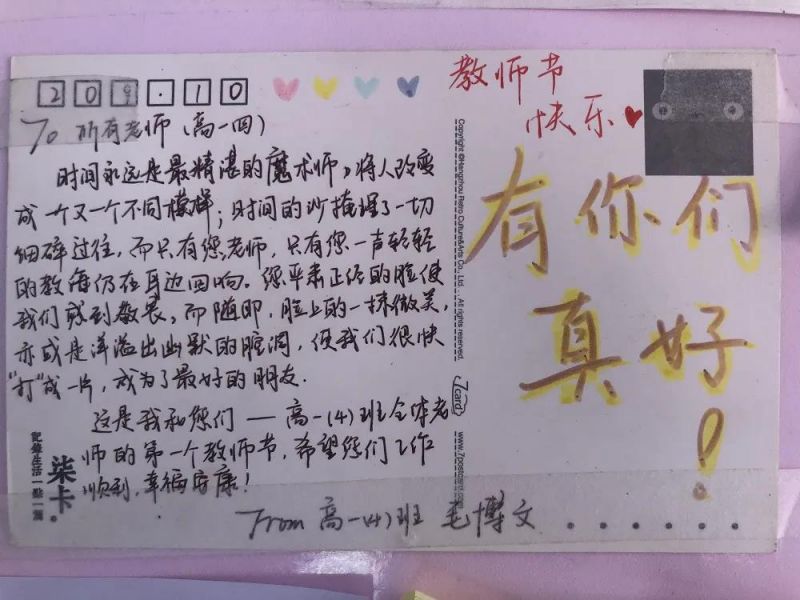 209.10
To 所有老师(高一四)
时间永远是最精湛的魔术师,将人改变
成一个又一个不同模样;时间的沙掩埋了一切
细碎过往,而只有您老师,只有您一声轻轻
的教诲仍在耳边回响。您平素正经的脸使
我们感到敬畏,而随即,脸上的一抹微笑,
亦或是洋溢出幽默的腔调,使我们很快
“打”成一片,成为了最好的朋友.
这是我和您们——高一(4)班全体老
师的第一个教师节,希望您们工作
顺利,幸福安康!
From 高一(4)班 毛博文
教师节
快乐
有你们
真好!
Copyright @Hangzhou Retro Culture&Arts Co., Ltd. . All rights reserved.
7card
www.7postcard
柒卡
記錄生活一點一滴